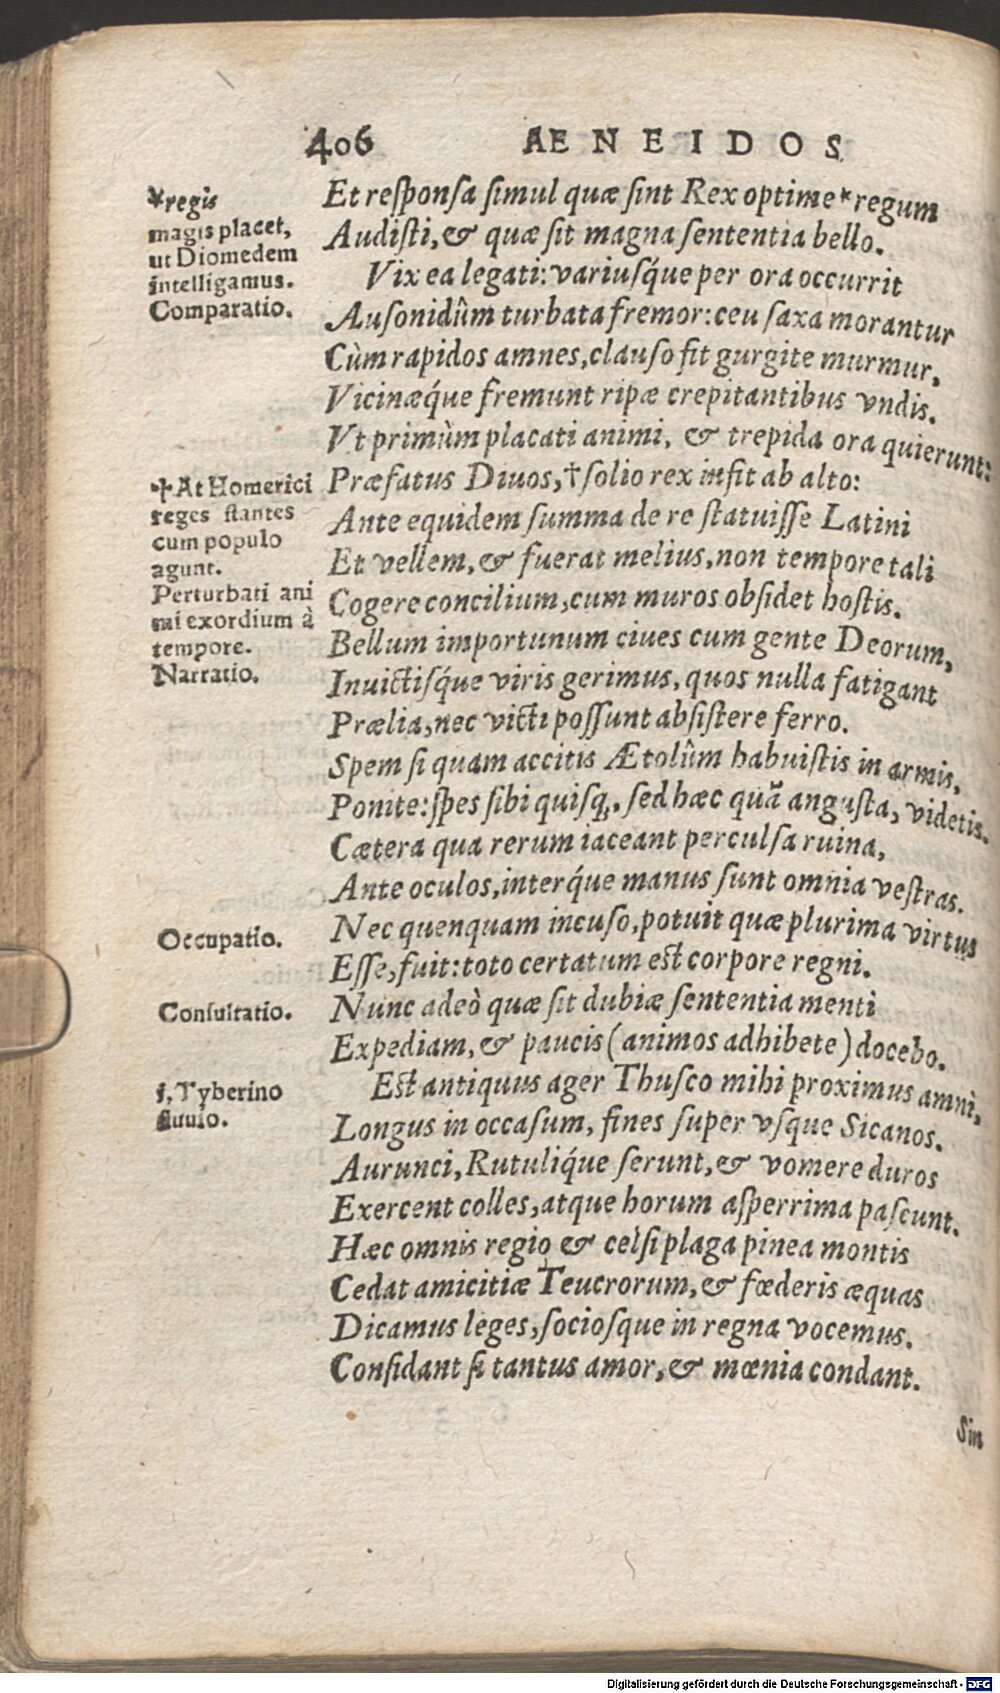 406 AENEIDOS
*regis
magis placet,
ut Diomedem
intelligamus.
Comparatio.
Et responsa simul quæ sint Rex optime* regum
Audisti, & quæ sit magna sententia bello.
Vix ea legati: variusq́ue per ora occurrit
Ausonidûm turbata fremor: ceu saxa morantur
Cùm rapidos amnes, clauso fit gurgite murmur,
Vicinæq́ue fremunt ripæ crepitantibus vndis.
Vt primùm placati animi, & trepida ora quierunt:
✝At Homerici
reges stantes
cum populo
agunt.
Perturbati ani
mi exordium à
tempore.
Narratio.
Præfatus Diuos, ✝solio rex infit ab alto:
Ante equidem summa de re statuisse Latini
Et vellem, & fuerat melius, non tempore tali
Cogere concilium, cum muros obsidet hostis.
Bellum importunum ciues cum gente Deorum,
Inuictisq́ue viris gerimus, quos nulla fatigant
Prælia, nec victi possunt absistere ferro.
Spem si quam accitis Ætolûm habuistis in armis,
Ponite: spes sibi quisq,, sed hæc quā angusta, videtis.
Cætera qua rerum iaceant perculsa ruina,
Ante oculos, interq́ue manus sunt omnia vestras.
Occupatio.
Nec quenquam incuso, potuit quæ plurima virtus
Esse, fuit: toto certatum est corpore regni.
Consultatio.
Nunc adeò quæ sit dubiæ sententia menti
Expediam, & paucis (animos adhibete) docebo.
i, Tyberino
fluuio.
Est antiquus ager Thusco mihi proximus amni,
Longus in occasum, fines super vsque Sicanos.
Aurunci, Rutuliq́ue serunt, & vomere duros
Exercent colles, atque horum asperrima pascunt.
Hæc omnis regio & celsi plaga pinea montis
Cedat amicitiæ Teucrorum, & fœderis æquas
Dicamus leges, sociosque in regna vocemus.
Considant si tantus amor, & mœnia condant.
Sin
Digitalisierung gefördert durch die Deutsche Forschungsgemeinschaft - DFG